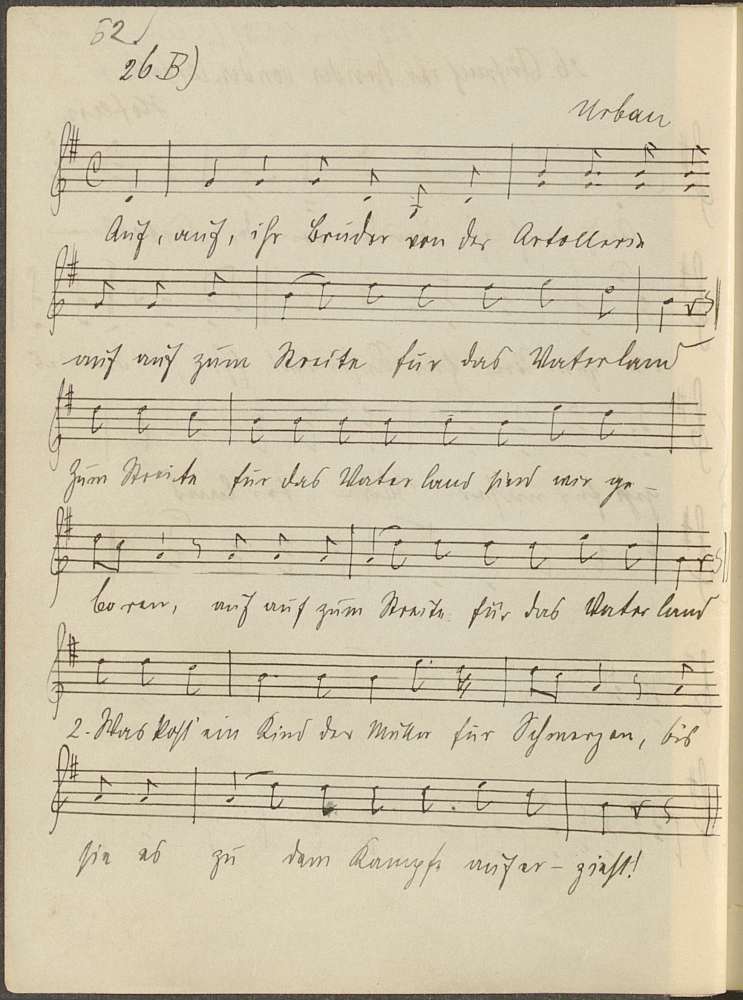 62
26 B)
Urban
Auf, auf, ihr Brüder von der Artollerie
auf auf zum Streite für das Vaterland
Zum Streite für das Vaterland sind wir ge-
boren, auf auf zum Streite für das Vaterland
2. Was kost' ein Kind der Mutter für Schmerzen, bis
sie es zu dem Kampfe aufer-zieht!